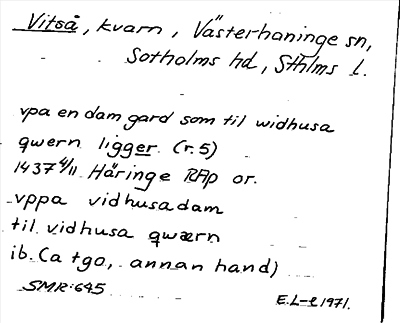 Vitså, kvarn, Västerhaninge sn,
Sotholms hd, Sthlms l.
vpa en dam gard som til widhusa
qwern ligger. (r. 5)
1437 4/11 Häringe RAp or.
vppa vidhusadam
til vidhusa qwærn
ib. (a tgo, annan hand)
SMR:645
E.L-e 1971.